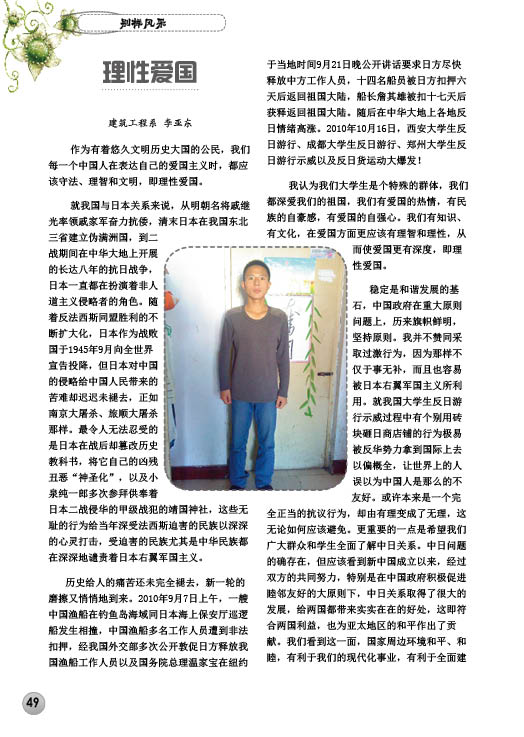 别样风采
理性爱国
建筑工程系 李亚东
作为有着悠久文明历史大国的公民，我们
每一个中国人在表达自己的爱国主义时，都应
该守法、理智和文明，即理性爱国。
就我国与日本关系来说，从明朝名将戚继
光率领戚家军奋力抗倭，清末日本在我国东北
三省建立伪满洲国，到二
战期间在中华大地上开展
的长达八年的抗日战争，
日本一直都在扮演着非人
道主义侵略者的角色。随
着反法西斯同盟胜利的不
断扩大化，日本作为战败
国于1945年9月向全世界
宣告投降，但日本对中国
的侵略给中国人民带来的
苦难却迟迟未褪去，正如
南京大屠杀、旅顺大屠杀
那样。最令人无法忍受的
是日本在战后却篡改历史
教科书，将它自己的凶残
丑恶“神圣化”，以及小
泉纯一郎多次参拜供奉着
日本二战侵华的甲级战犯的靖国神社，这些无
耻的行为给当年深受法西斯迫害的民族以深深
的心灵打击，受迫害的民族尤其是中华民族都
在深深地谴责着日本右翼军国主义。
历史给人的痛苦还未完全褪去，新一轮的
磨擦又悄悄地到来。2010年9月7日上午，一艘
中国渔船在钓鱼岛海域同日本海上保安厅巡逻
船发生相撞，中国渔船多名工作人员遭到非法
扣押，经我国外交部多次公开敦促日方释放我
国渔船工作人员以及国务院总理温家宝在纽约
于当地时间9月21日晚公开讲话要求日方尽快
释放中方工作人员，十四名船员被日方扣押六
天后返回祖国大陆，船长詹其雄被扣十七天后
获释返回祖国大陆。随后在中华大地上各地反
日情绪高涨。2010年10月16日，西安大学生反
日游行、成都大学生反日游行、郑州大学生反
日游行示威以及反日货运动大爆发！
我认为我们大学生是个特殊的群体，我们
都深爱我们的祖国，我们有爱国的热情，有民
族的自豪感，有爱国的自强心。我们有知识、
有文化，在爱国方面更应该有理智和理性，从
而使爱国更有深度，即理
性爱国。
稳定是和谐发展的基
石，中国政府在重大原则
问题上，历来旗帜鲜明，
坚持原则。我并不赞同采
取过激行为，因为那样不
仅于事无补，而且也容易
被日本右翼军国主义所利
用。就我国大学生反日游
行示威过程中有个别用砖
块砸日商店铺的行为极易
被反华势力拿到国际上去
以偏概全，让世界上的人
误以为中国人是那么的不
友好。或许本来是一个完
全正当的抗议行为，却由有理变成了无理，这
无论如何应该避免。更重要的一点是希望我们
广大群众和学生全面了解中日关系。中日问题
的确存在，但应该看到新中国成立以来，经过
双方的共同努力，特别是在中国政府积极促进
睦邻友好的大原则下，中日关系取得了很大的
发展，给两国都带来实实在在的好处，这即符
合两国利益，也为亚太地区的和平作出了贡
献。我们看到这一面，国家周边环境和平、和
睦，有利于我们的现代化事业，有利于全面建
49